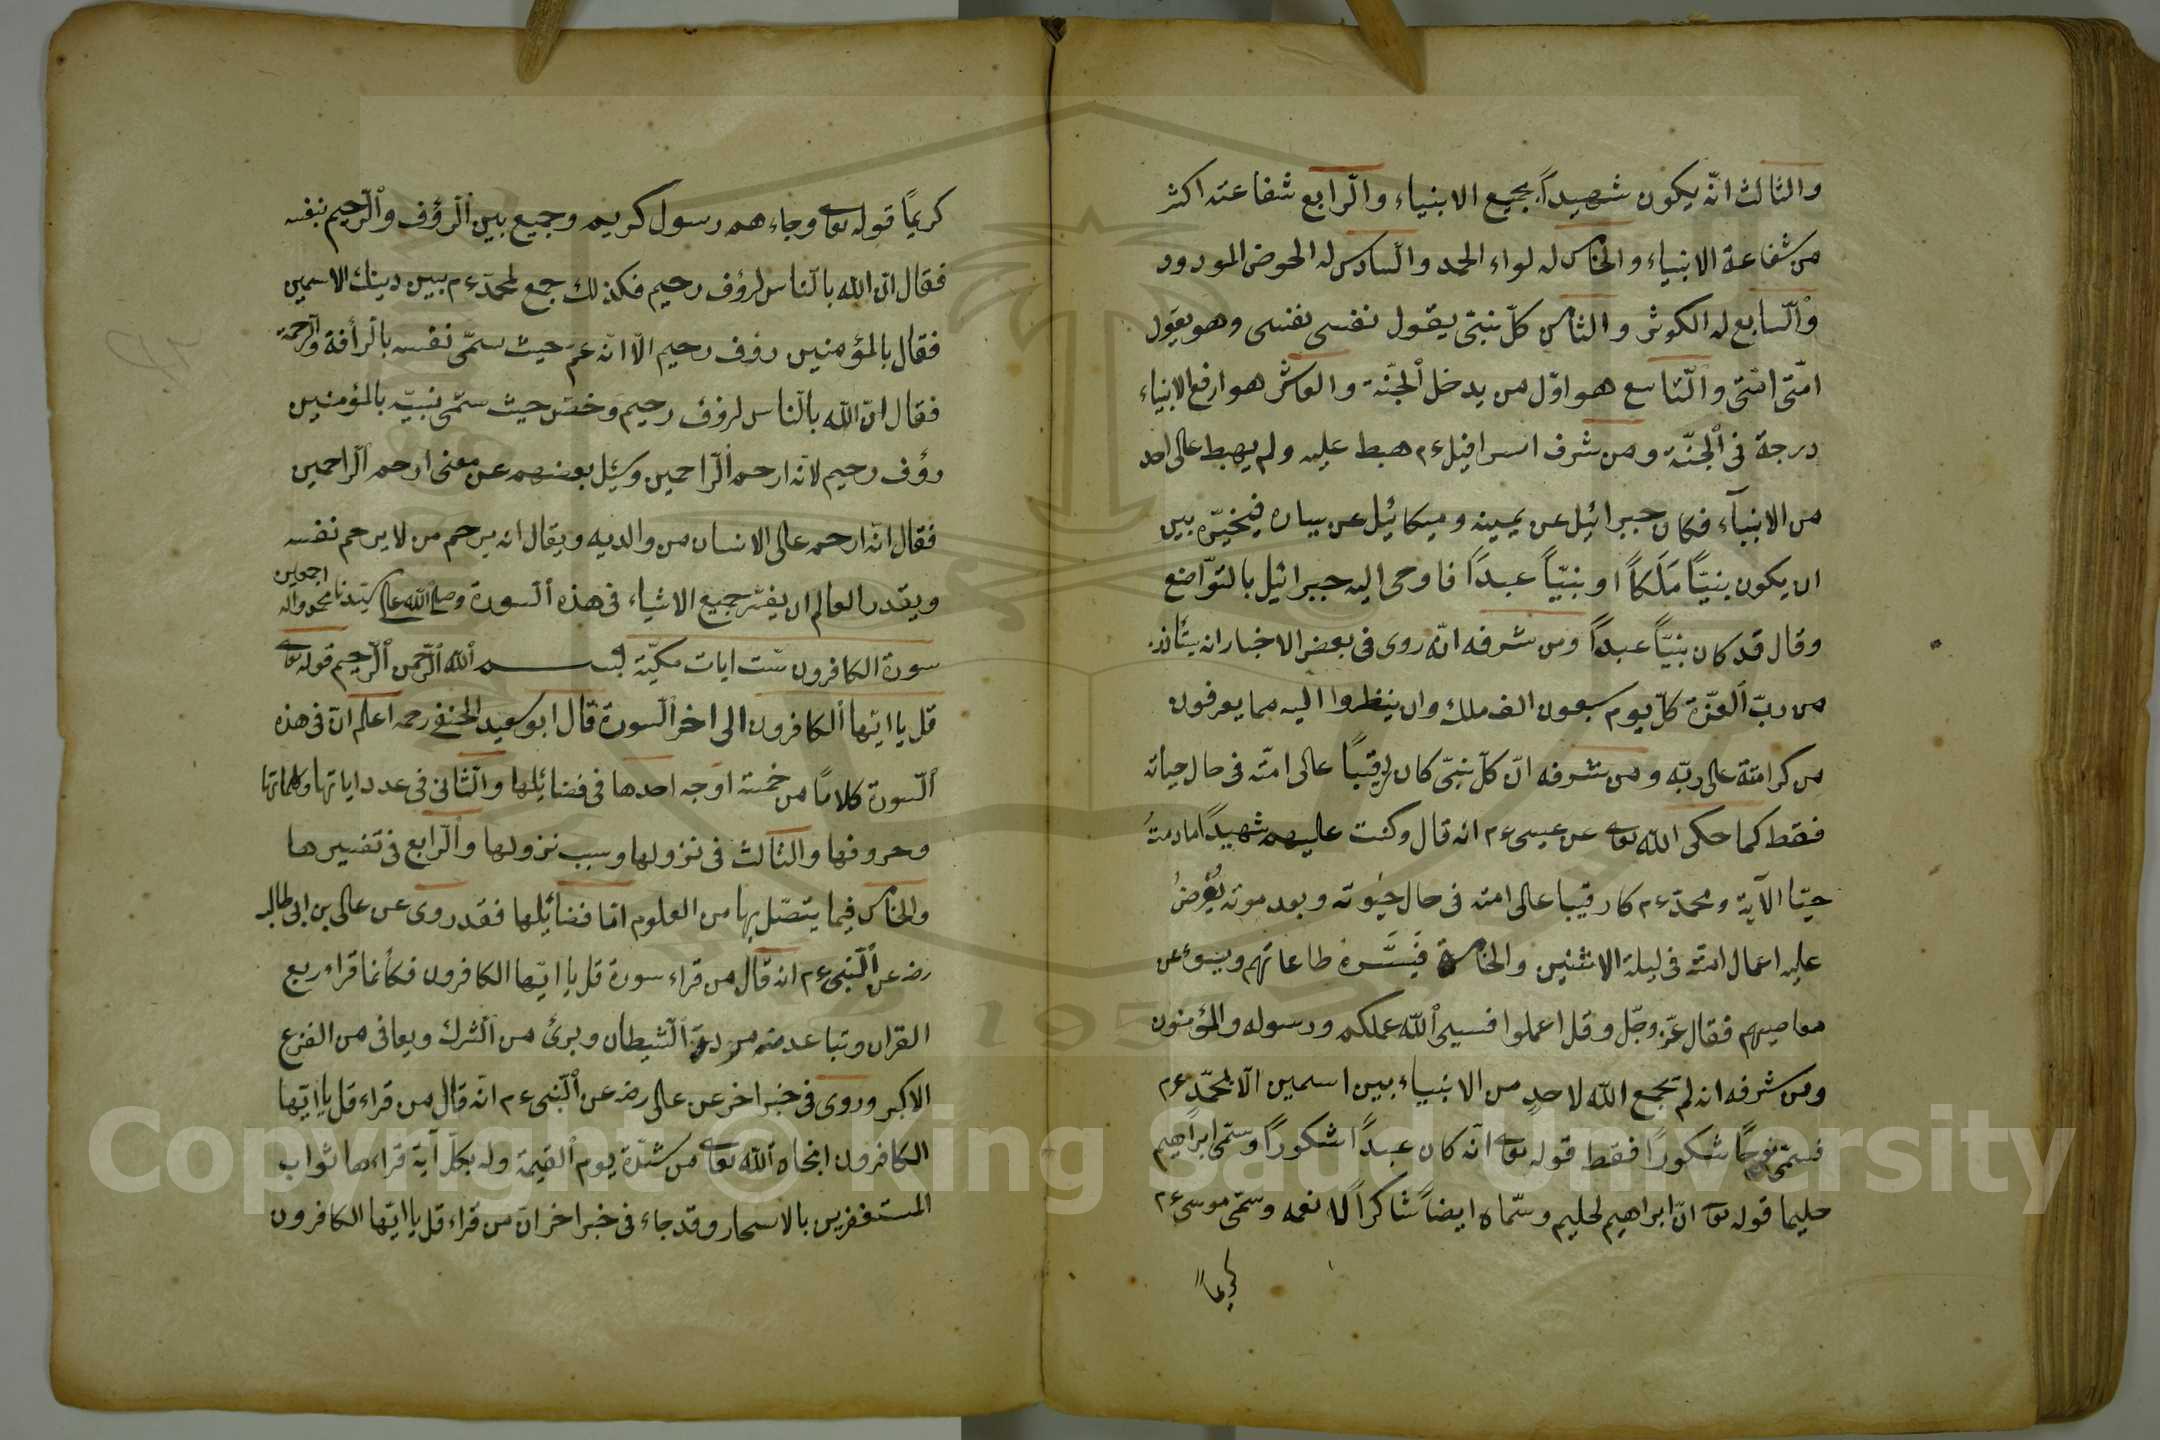 والثالث انّه يكون شهيداً بجميع الانبياء والرّابع شفاعته اكثر
من شفاعة الانبياء والخامس له لواء الحمد والسّادس له الحوض المورود
والسّابع له الكوثر والثامن كلّ نبىّ يقول نفسى نفسى وهو يقول
امّتى امّتى والتّاسع هو اوّل من يدخل الجنّة والعاشر هو ارفع الانبياء
درجة فى الجنّة ومن شرف اسرافيل ءم هبط عليه ولم يهبط على احد
من الانبيآء فكان جبرائيل عن يمينه وميكائيل عن يساره فيخيّره بين
ان يكون نبيّاً مَلَكاً او نبيّاً عبداً فاوحى اليه جبرائيل بالتّواضع
وقال قد كان نبيّاً عبداً ومن شرفه انّه روى فى بعض الاخبار انه يستأذن
من ربّ العزّة كلّ يوم سبعون الف ملك وان ينظروا اليه مما يعرفون
من كرامته على ربّه ومن شرفه انّ كلّ نبىّ كان رقيباً على امّته فى حال حياته
فقط كما حكى الله تعالى عن عيسى ءم انه قال وكنت عليهم شهيداً ما دمتُ
حيّا الآية ومحمّد ءم كان رقيبا على امته فى حال حيٰوته وبعد موته يُعْرَضُ
عليه اعمال امّته فى ليلة الاثنين والخامسة فَيَسُرّه طاعاتهم ويسوءعن
معاصيهم فقال عزّ وجّل وقل اعملوا فسيرى الله عملكم ورسوله والمؤمنون
ومن شرفه انه لم تجمع الله لاحدٍ من الانبياء بين اسمين الّا لمحمّد ءم
فسمّى نوحاً شكوراً فقط قوله تعالى انّه كان عبداً شكوراً وسمّى ابراهيم
حليما قوله تعالى انّ ابراهيم لحليم وسمّاه ايضاً شاكراً لا نعمه وسمّى موسى ءم
كريماً
كريماً قوله تعالى وجاءهم رسول كريم وجميع بين الرؤف والرّحيم نفسه
فقال انّ الله بالنّاس لرؤف رحيم فكذلك جمع لمحمّد ءم بين دينك الاسمين
فقال بالمؤمنين رؤف رحيم الّا انّه عمّ حيث سمّى نفسه بالرّأفة والرّحمة
فقال انّ الله بالنّاس لرؤف رحيم وخصّ حيث سمّى نبيّه بالمؤمنين
رؤف رحيم لانّه ارحم الرّاحمين وسئل بعضهم عن معنى ارحم الرّاحمين
فقال انّه ارحم على الانسان من والديه ويقال انه يرحم من لا يرحم نفسه
ويقدر العالم ان يفسّر جميع الاشياء فى هذه السورة وصلى الله على سيّدنا محمد واله اجمعين
سورة الكافرون ستّ ايات مكيّة بسم الله الرّحمن الرّحيم قوله تعالى
قل يا ايّها الكافرون الى اخر السّورة قال ابو سعيد الحنفى رحمه اعلم انّ فى هذه
السّورة كلامًا من خمسة اوجه احدها فى فضائلها والثّانى فى عدد اياتها وكلماتها
وحروفها والثالث فى نزولها وسبب نزولها والرّابع فى تفسيرها
والخامس فيما يتصّل بها من العلوم امّا فضائلها فقد روى عن على بن ابى طالب
رضه عن النّبى ءم انه قال من قراء سورة قل يا ايّها الكافرون فكأنما قراء ربع
القران وتباعد منه مردة الشّيطان وبرئ من الشّرك ويعافى من الفزع
الاكبر وروى فى خبر اخر عن على رضه عن النّبى ءم انّه قال من قراء قل يا ايّها
الكافرون انجاه الله تعالى من شدّة يوم القيمة وله بكلّ آية قراءها ثواب
المستغفرين بالاسحار وقد جاء فى خبر اخر انّ من قراء قل يا ايّها الكافرون
Copyright © King Saud University